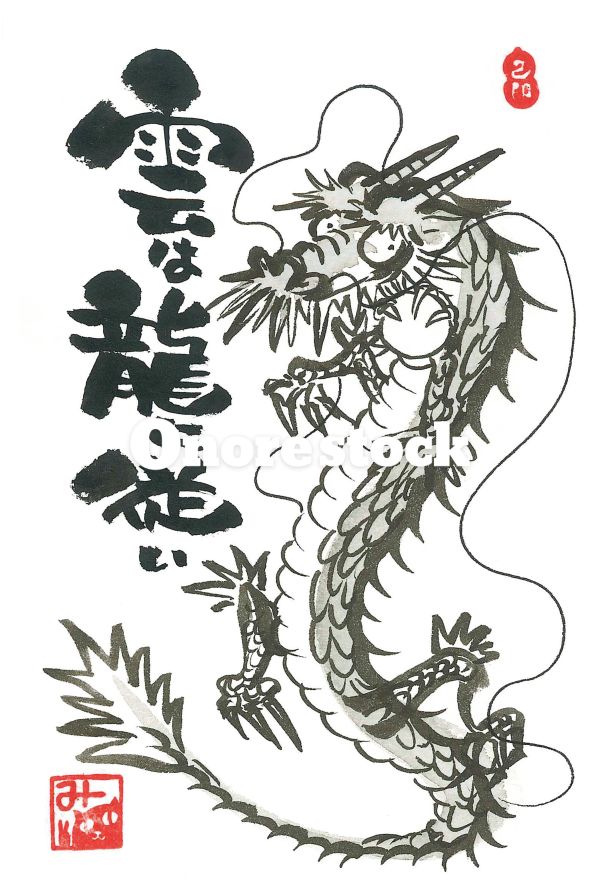 雲は龍に従い
Onorestock
み